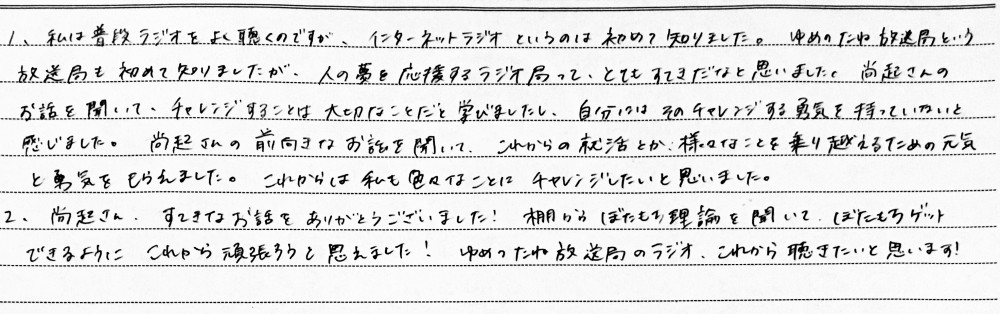 1、私は普段ラジオをよく聴くのですが、インターネットラジオというのは初めて知りました。ゆめのたね放送局という
放送局も初めて知りましたが、人の夢を応援するラジオ局って、とてもすてきだなと思いました。尚起さんの
お話を聞いて、チャレンジすることは大切なことだと学びましたし、自分にはそのチャレンジする勇気を持っていないと
感じました。尚起さんの前向きなお話を聞いて、これからの就活とか、様々なことを乗り越えるための元気
と勇気をもらえました。これからは私も色々なことにチャレンジしたいと思いました。
2、尚起さん、すてきなお話をありがとうございました!棚からぼたもち理論を聞いて、ぼたもちゲット
できるようにこれから頑張ろうと思えました!ゆめのたね放送局のラジオ、これから聴きたいと思います!